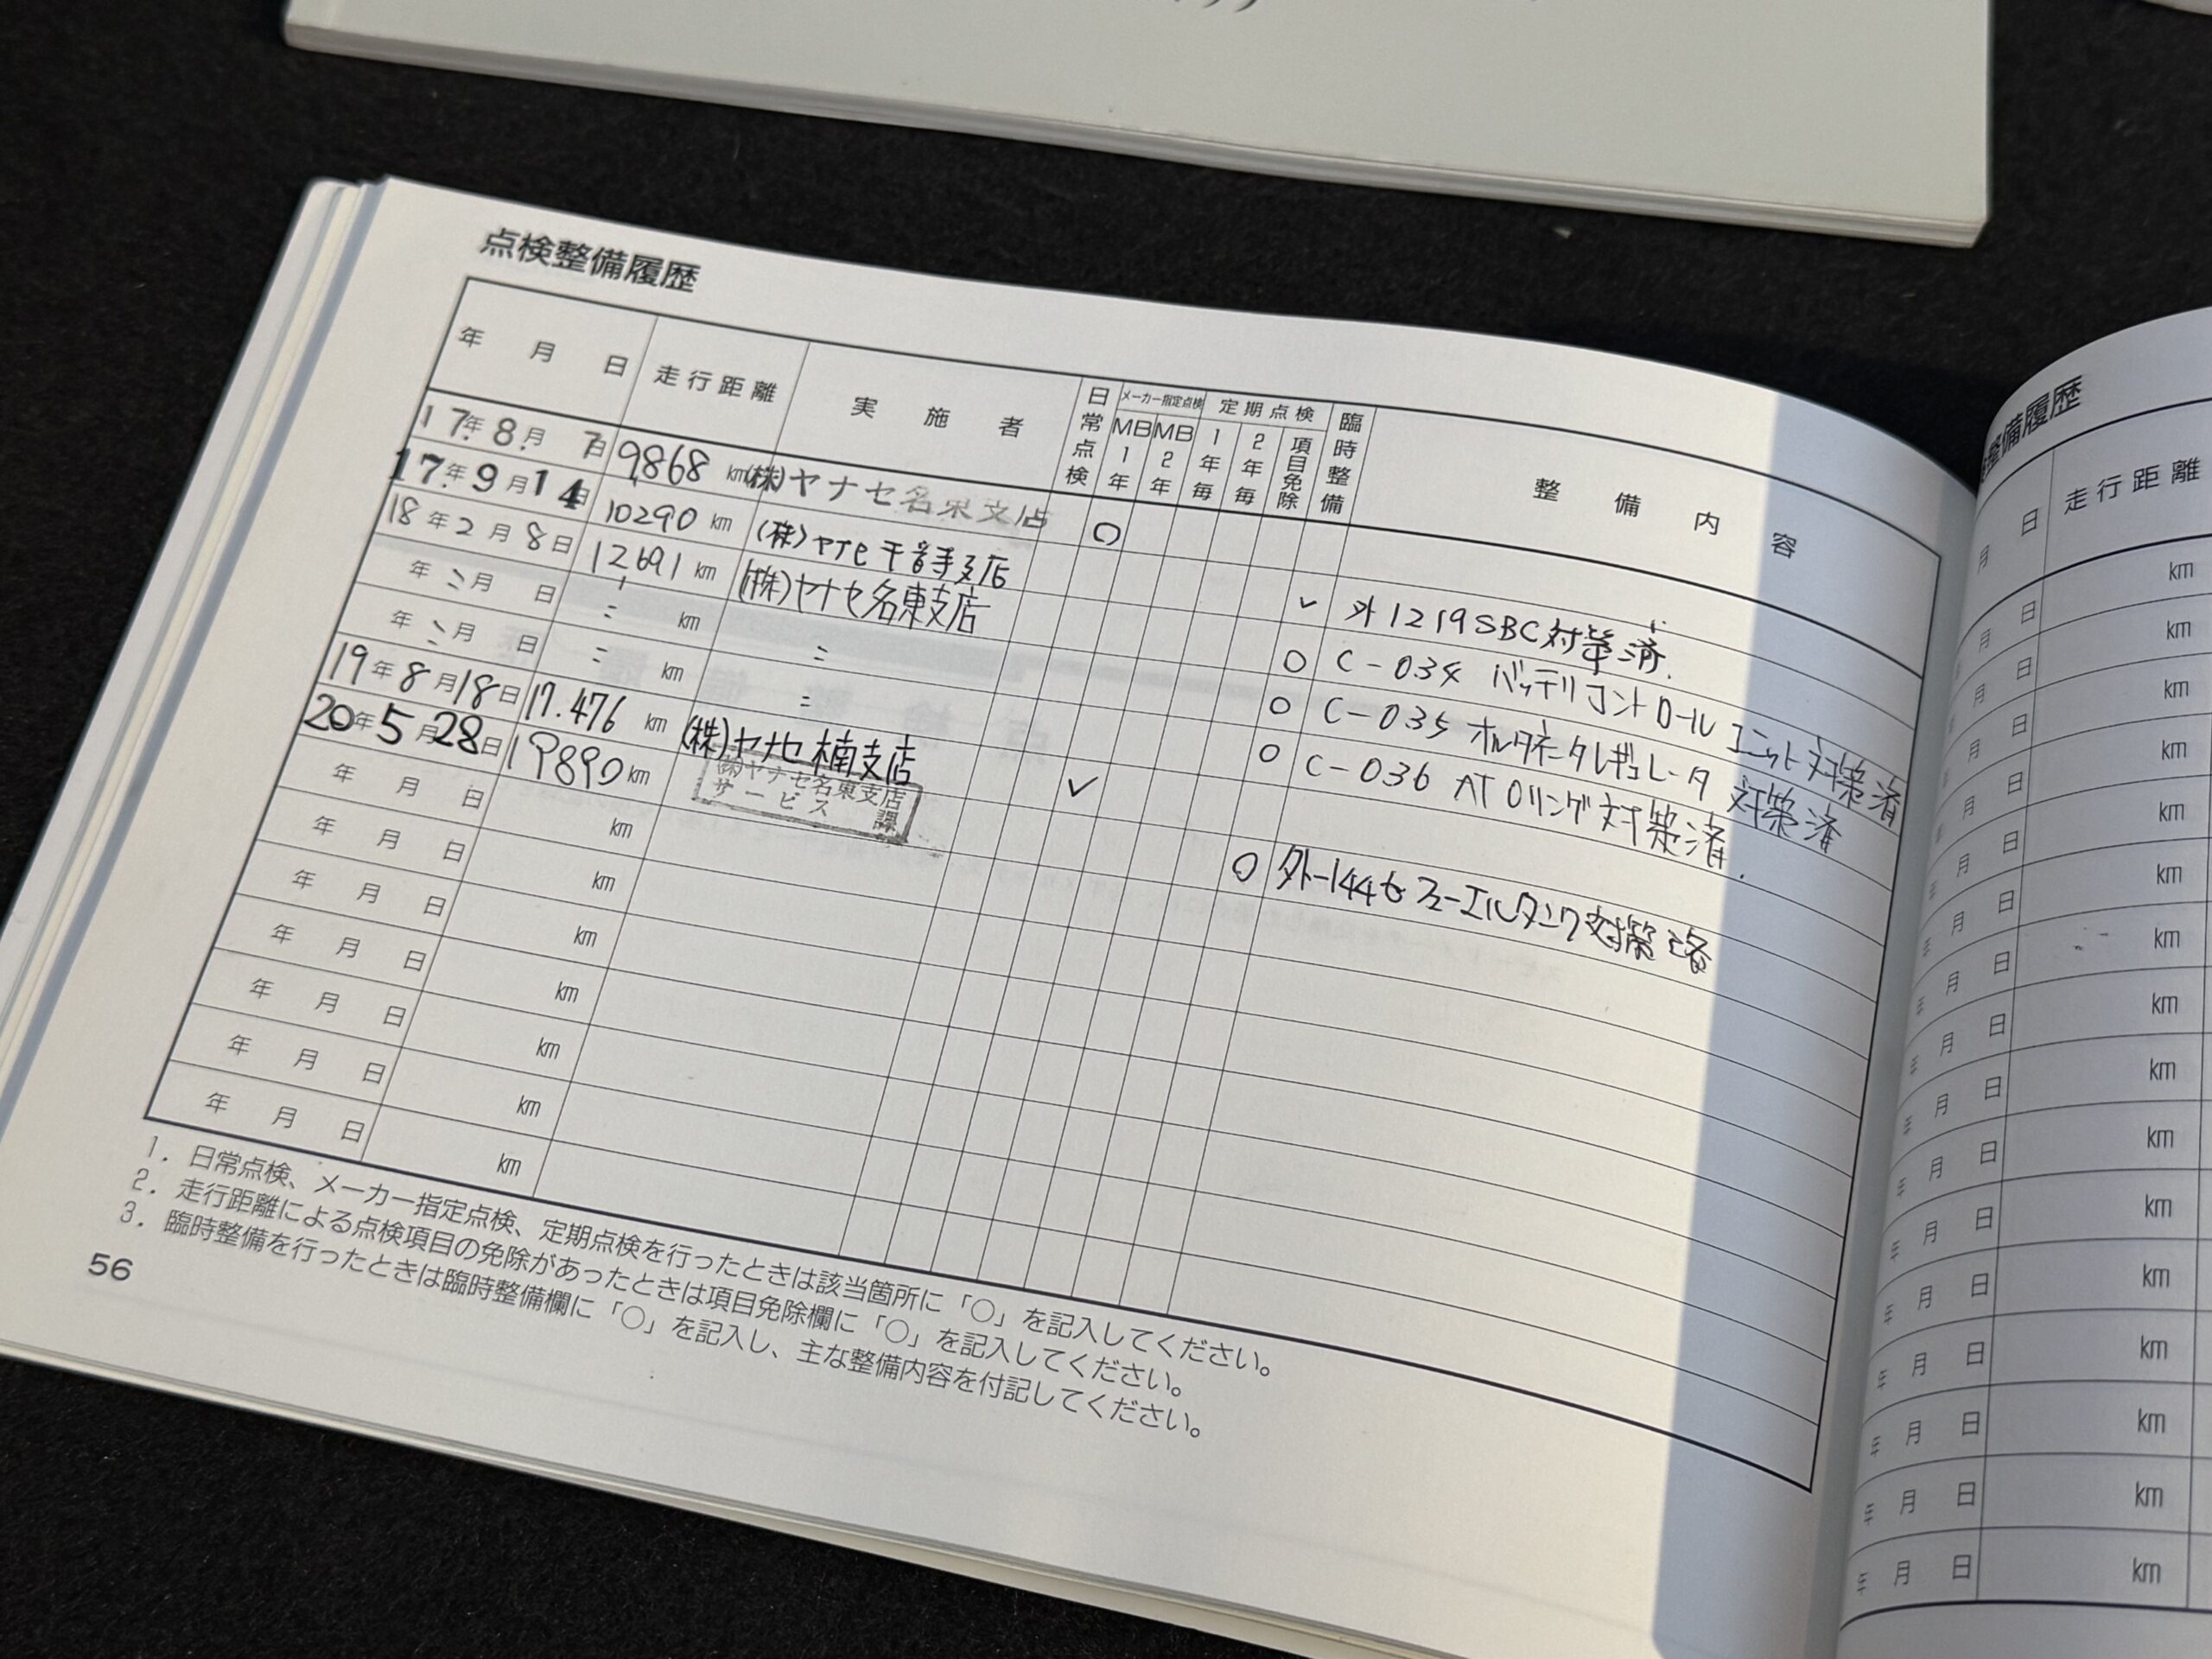 点検整備履歴
年 月 日 走行距離 実施者 日常点検 メーカー指定点検 MB1年 MB2年 定期点検 1年毎 2年毎 項目免除 臨時整備 整備内容
17年8月7日 9868km (株)ヤナセ名東支店 ○
17年9月14日 10290km (株)ヤナセ 支店 ✓ 外1219SBC対策済.
18年2月8日 12691km (株)ヤナセ名東支店 ○ C-034 バッテリコントロールユニット対策済
年〃月 日 〃 km 〃 ○ C-035 オルタネータレギュレータ 対策済
年〃月 日 〃 km 〃 ○ C-036 AT Oリング対策済.
19年8月18日 17.476km (株)ヤナセ楠支店 ○ 外-1446 フューエルタンク対策済
20年5月28日 19890km (株)ヤナセ名東支店 サービス課 ✓
年 月 日 km
年 月 日 km
年 月 日 km
年 月 日 km
年 月 日 km
年 月 日 km
年 月 日 km
1. 日常点検、メーカー指定点検、定期点検を行ったときは該当箇所に「○」を記入してください。
2. 走行距離による点検項目の免除があったときは項目免除欄に「○」を記入してください。
3. 臨時整備を行ったときは臨時整備欄に「○」を記入し、主な整備内容を付記してください。
56
整備履歴
月 日 走行距離
月 日 km
年 月 日 km
年 月 日 km
年 月 日 km
年 月 日 km
年 月 日 km
年 月 日 km
年 月 日 km
年 月 日 km
年 月 日 km
年 月 日 km
年 月 日 km
年 月 日 km
年 月 日 km
年 月 日 km
年 月 日 km